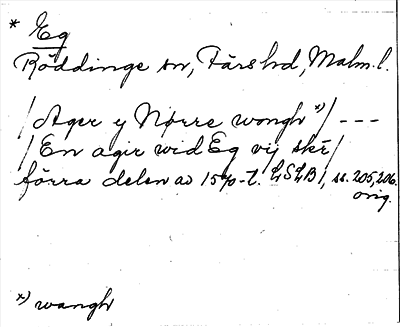 * Eg
Röddinge sn, Färs hd, Malm. l.
/Ager y Nørre wongh *)/ ---
/En agir wid Eg vij skr/
förra delen av 15%-t. LSLB 1, ss. 205, 206.
orig.
*) wangh